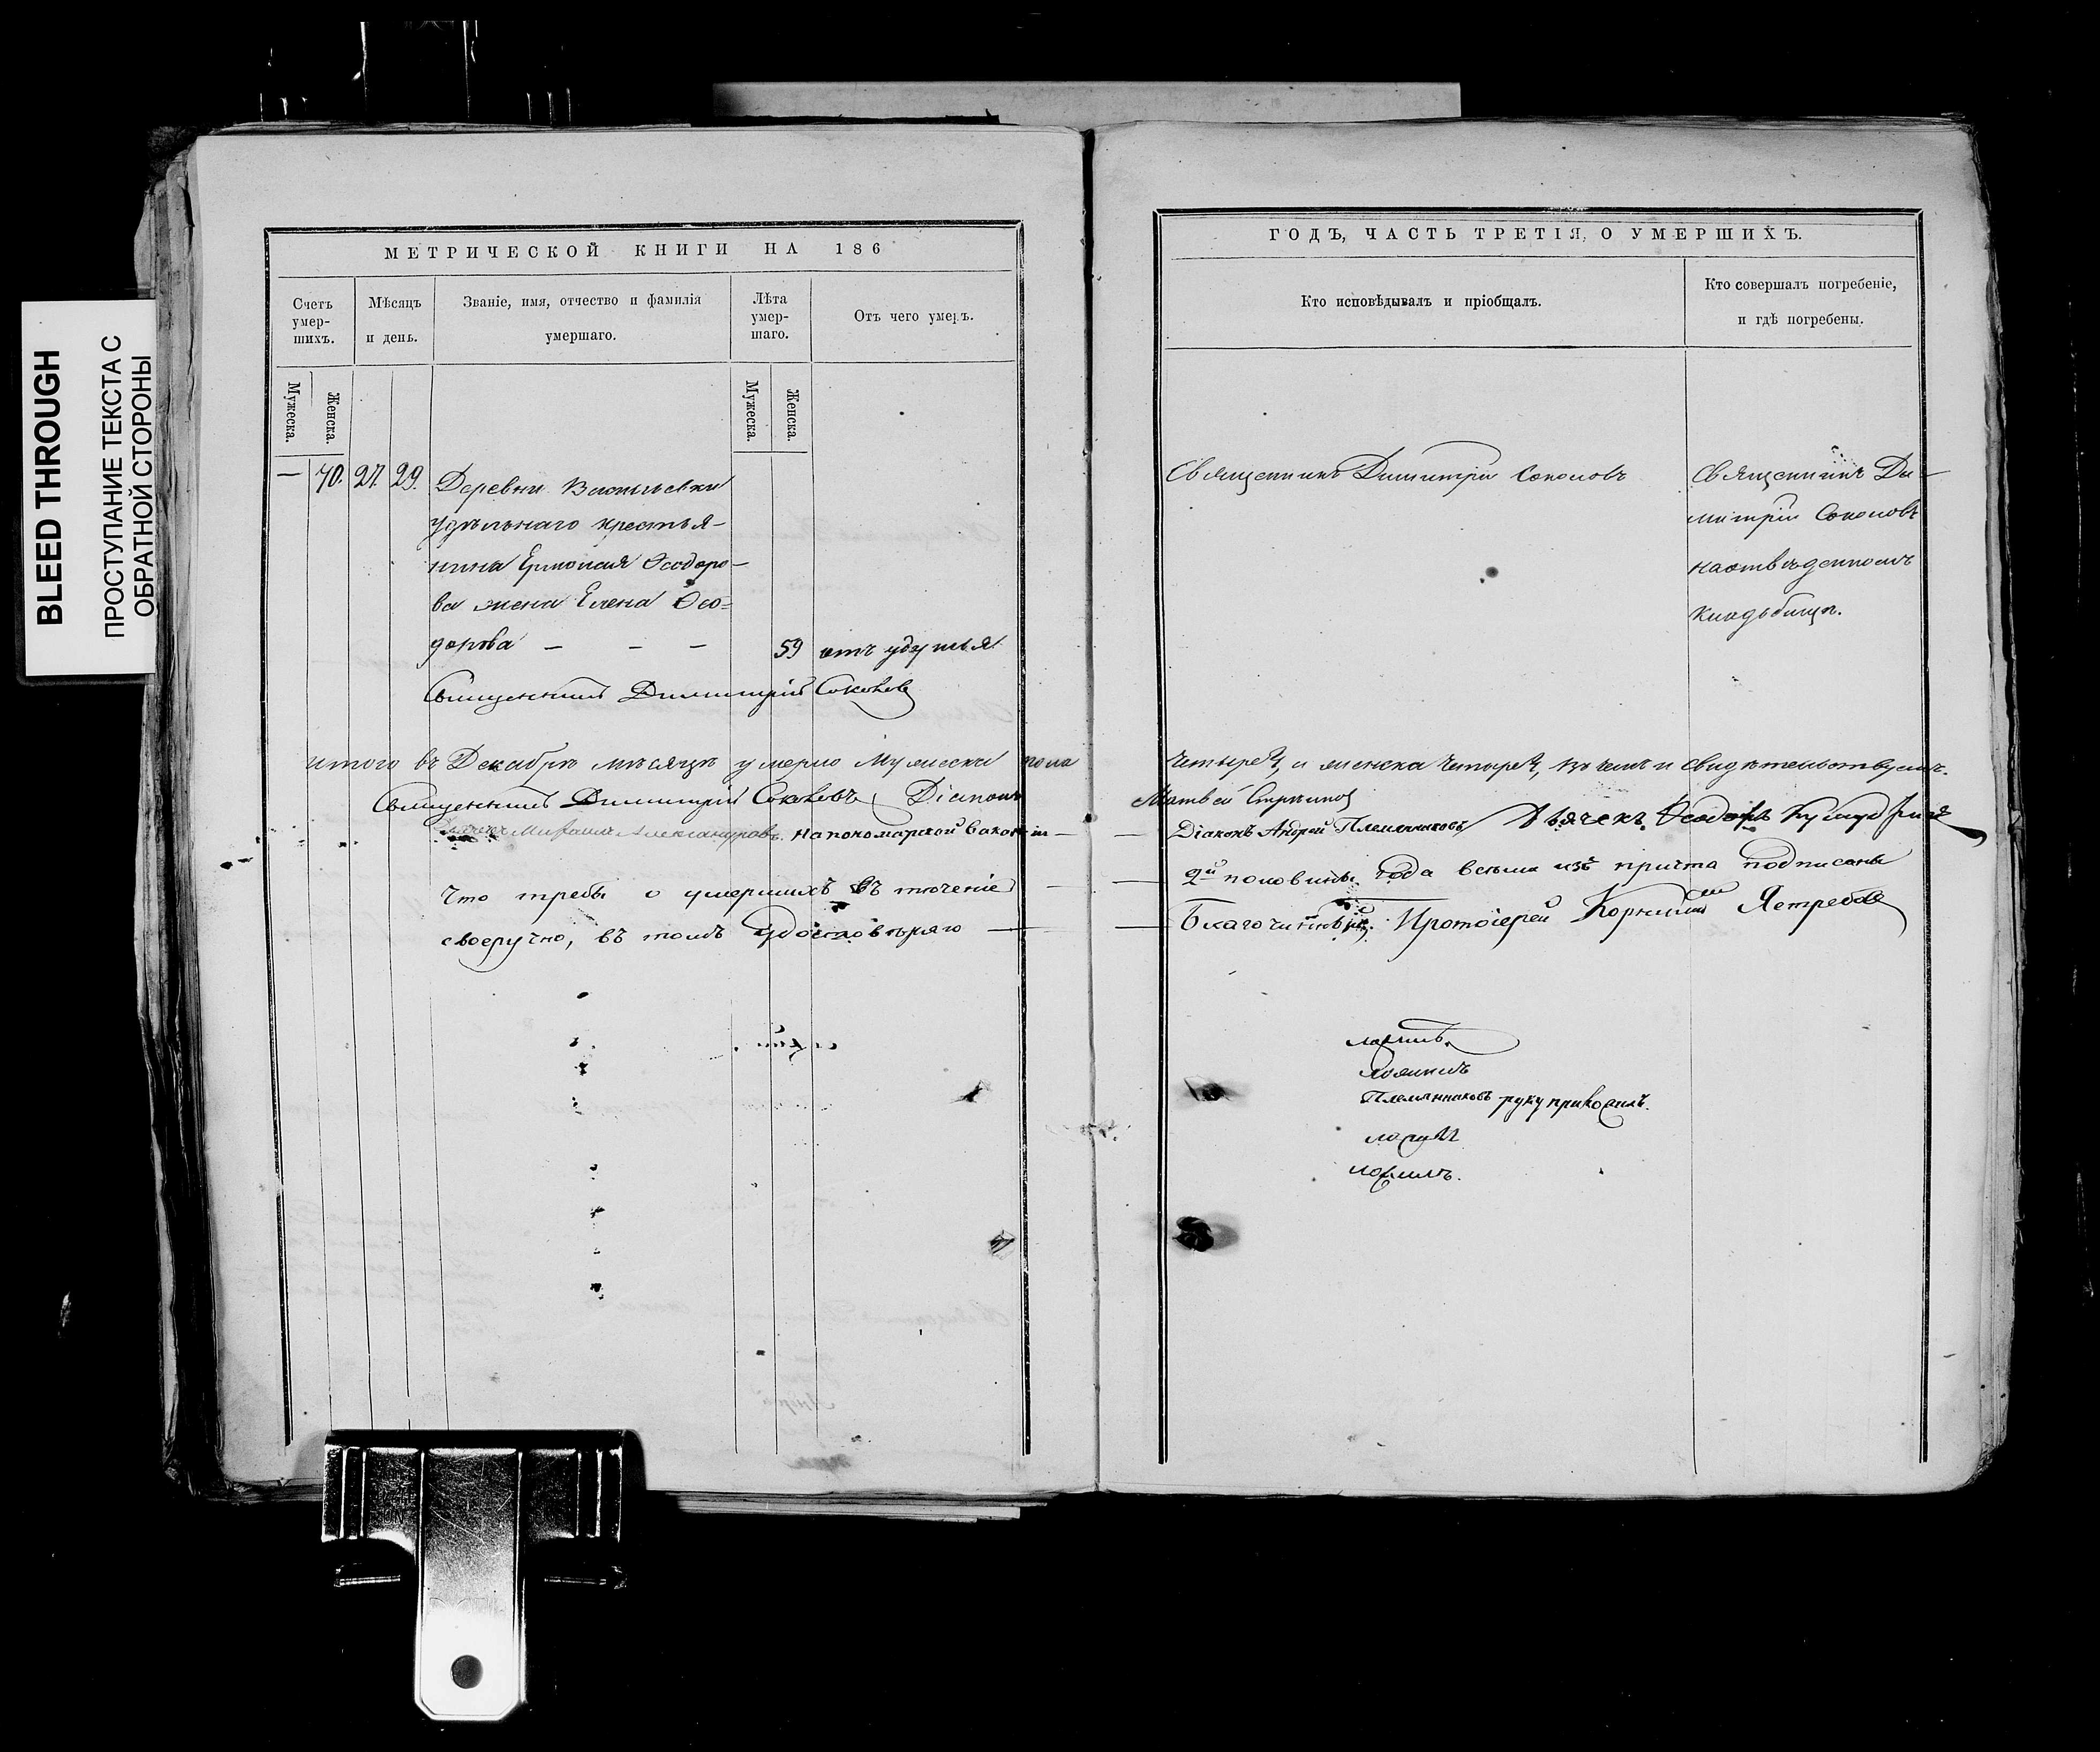 BLEED THROUGH
ПРОСТУПАНИЕ ТЕКСТА С
ОБРАТНОЙ СТОРОНЫ
МЕТРИЧЕСКОЙ КНИГИ НА 186
Счетъ умер-шихъ.
Мѣсяцъ и день.
Званіе, имя, отчество и фамилія умершаго.
Лѣта умер-шаго.
Отъ чего умеръ.
Мужеска.
Женска.
Мужеска.
Женска.
— 70. 27. 29. Деревни
удѣльнаго крестья-
нина Ермолая Ѳеодоро-
ва жена Елена Ѳео-
дорова — — — 59 отъ удушья
Священникъ Димитрій Соколовъ
итого въ Декабрѣ мѣсяцѣ умерло мужеска пола
Священникъ Димитрій Соколовъ Діаконъ
Александровъ на пономарской вакансіи —
Что требы о умершихъ въ теченіе —
своеручно, въ томъ удостовѣряю —
ГОДЪ, ЧАСТЬ ТРЕТІЯ, О УМЕРШИХЪ.
Кто исповѣдывалъ и пріобщалъ.
Кто совершалъ погребеніе,
и гдѣ погребены.
Священникъ Димитрій Соколовъ
Священникъ Ди-
митрій Соколовъ
на отведенномъ
кладбищѣ.
четыре, и женска четыре, въ чемъ и свидѣтельствуемъ.
Матвей
— Діаконъ Андрей Племянниковъ Дьячекъ Ѳеодоръ
— 2й половины года всѣми изъ причта подписаны
— Благочинный, Протоіерей Корнилій Ястребовъ
ложилъ.
ложилъ
Племянниковъ руку приложилъ.
ложилъ
ложилъ.